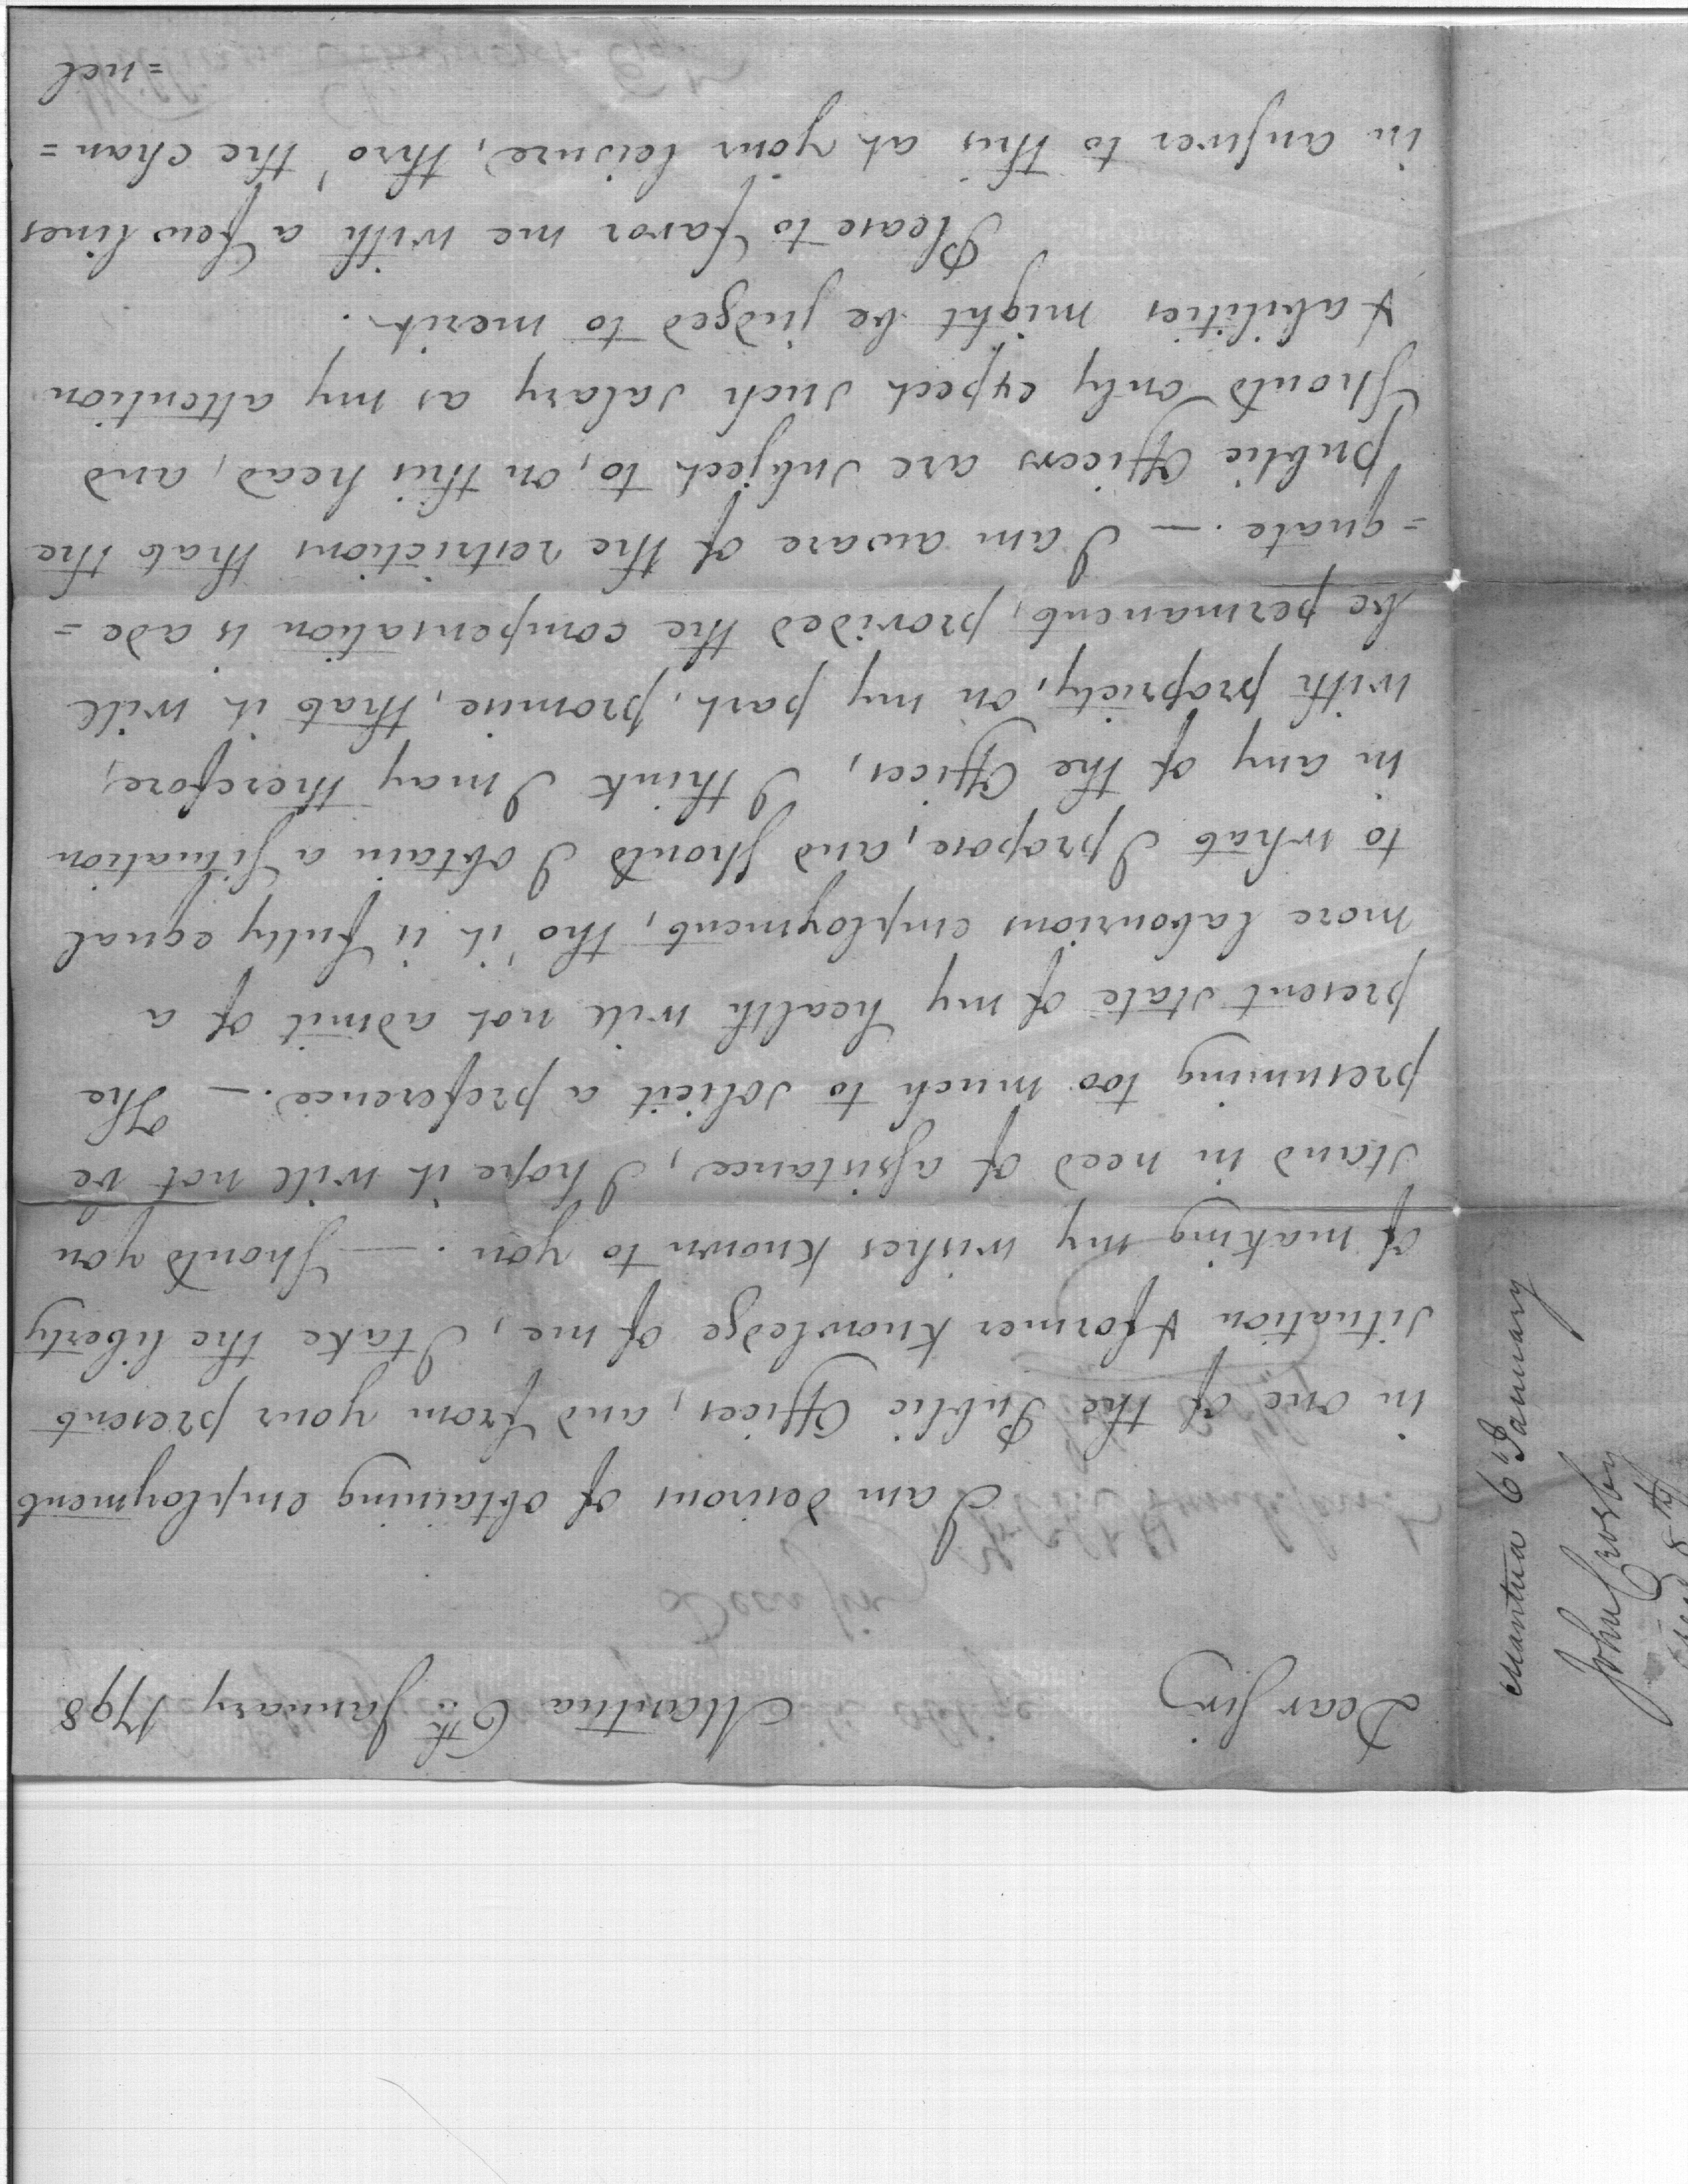 Dear Sir
Mantua 6th January 1798
I am desirous of obtaining employment
in one of the Public Offices, and from your present
situation & former knowledge of me, I take the liberty
of making my wishes known to you. — Should you
stand in need of assistance, I hope it will not be
presuming too much to solicit a preference. — The
present state of my health will not admit of a
more labourious employment, tho' it is fully equal
to what I propose, and should I obtain a situation
in any of the Offices, I think I may therefore,
with propriety, on my part, promise, that it will
be permanent, provided the compensation is ade=
=quate. — I am aware of the restrictions that the
public Officers are subject to, on this head, and
should only expect such salary as my attention
& abilities might be judged to merit.
Please to favor me with a few lines
in answer to this at your leisure, thro' the chan=
=nel
Mantua 6 January
John Crosby
8th